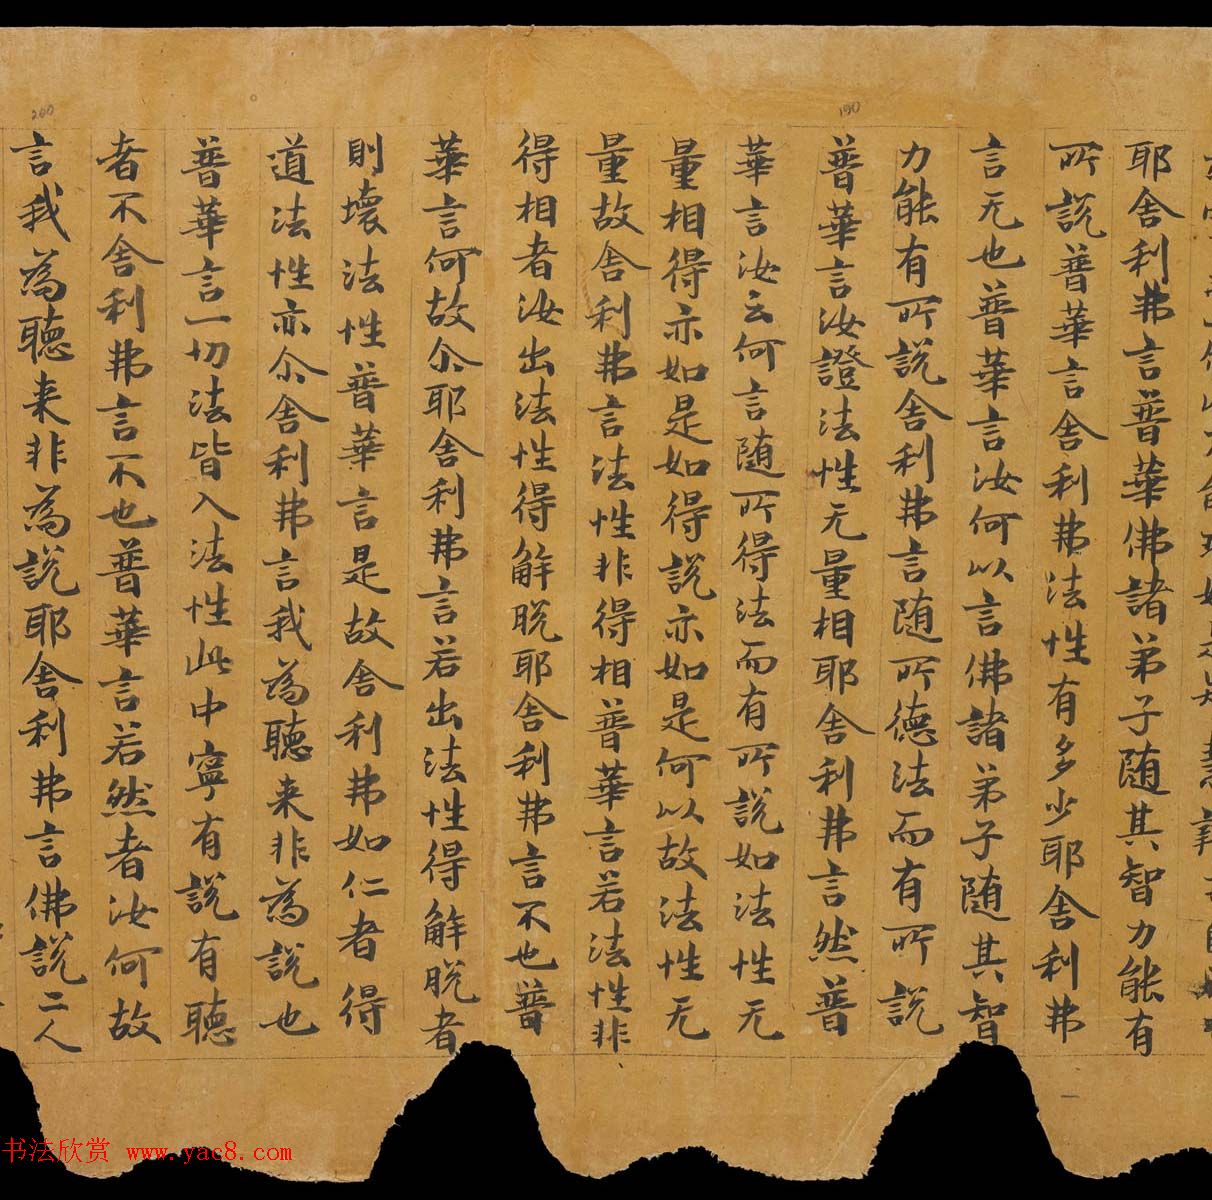 190
耶舍利弗言普華佛諸弟子随其智力能有
所說普華言舍利弗法性有多少耶舍利弗
言无也普華言汝何以言佛諸弟子随其智
力能有所說舍利弗言随所德法而有所說
普華言汝證法性无量相耶舍利弗言然普
華言汝云何言随所得法而有所說如法性无
量相得亦如是如得說亦如是何以故法性无
量故舍利弗言法性非得相普華言若法性非
得相者汝出法性得解脱耶舍利弗言不也普
華言何故尒耶舍利弗言若出法性得解脱者
則壞法性普華言是故舍利弗如仁者得
道法性亦尒舍利弗言我為聽来非為說也
普華言一切法皆入法性此中寧有說有聽
者不舍利弗言不也普華言若然者汝何故
200
言我為聽来非為說耶舍利弗言佛說二人
书法欣赏 www.yac8.com